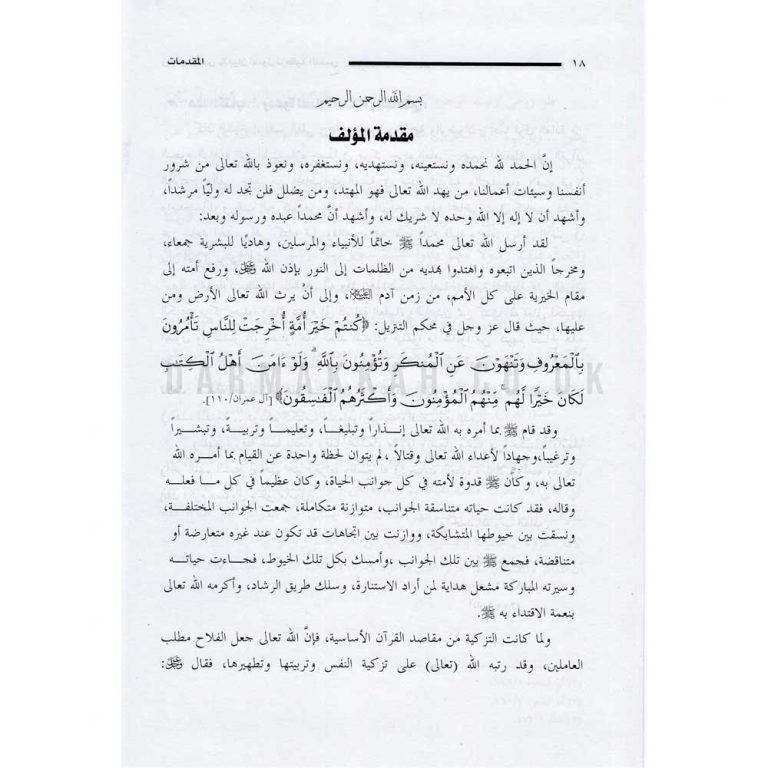 ١٨ المقدمات
بسم الله الرحمن الرحيم
مقدمة المؤلف
إنَّ الحمد لله نحمده ونستعينه، ونستهديه، ونستغفره، ونعوذ بالله تعالى من شرور
أنفسنا وسيئات أعمالنا، من يهد الله تعالى فهو المهتد، ومن يضلل فلن تجد له وليّاً مرشداً،
وأشهد أن لا إله إلا الله وحده لا شريك له، وأشهد أنَّ محمداً عبده ورسوله وبعد:
لقد أرسل الله تعالى محمداً ﷺ خاتماً للأنبياء والمرسلين، وهاديًا للبشرية جمعاء،
ومخرجاً الذين اتبعوه واهتدوا بهديه من الظلمات إلى النور بإذن الله ﷻ، ورفع أمته إلى
مقام الخيرية على كل الأمم، من زمن آدم عليه السلام، وإلى أنْ يرث الله تعالى الأرض ومن
عليها، حيث قال عز وجل في محكم التنزيل: ﴿كُنتُمْ خَيْرَ أُمَّةٍ أُخْرِجَتْ لِلنَّاسِ تَأْمُرُونَ
بِالْمَعْرُوفِ وَتَنْهَوْنَ عَنِ الْمُنكَرِ وَتُؤْمِنُونَ بِاللَّهِ ۗ وَلَوْ ءَامَنَ أَهْلُ الْكِتَٰبِ
لَكَانَ خَيْرًا لَّهُم ۚ مِّنْهُمُ الْمُؤْمِنُونَ وَأَكْثَرُهُمُ الْفَٰسِقُونَ﴾ [آل عمران/١١٠].
DARMAKKAH.CO.UK
وقد قام ﷺ بما أمره به الله تعالى إنذاراً وتبليغاً، وتعليماً وتربيةً، وتبشيراً
وترغيباً،وجهاداً لأعداء الله تعالى وقتالاً ،لم يتوان لحظة واحدة عن القيام بما أمره الله
تعالى به، وكان ﷺ قدوة لأمته في كل جوانب الحياة، وكان عظيماً في كل ما فعله
وقاله، فقد كانت حياته متناسقة الجوانب، متوازنة متكاملة، جمعت الجوانب المختلفة،
ونسقت بين خيوطها المتشابكة، ووازنت بين اتجاهات قد تكون عند غيره متعارضة أو
متناقضة، فجمع ﷺ بين تلك الجوانب ،وأمسك بكل تلك الخيوط، فجاءت حياته
وسيرته المباركة مشعل هداية لمن أراد الاستنارة، وسلك طريق الرشاد، وأكرمه الله تعالى
بنعمة الاقتداء به ﷺ.
ولما كانت التزكية من مقاصد القرآن الأساسية، فإنَّ الله تعالى جعل الفلاح مطلب
العاملين، وقد رتبه الله (تعالى) على تزكية النفس وتربيتها وتطهيرها، فقال ﷻ: